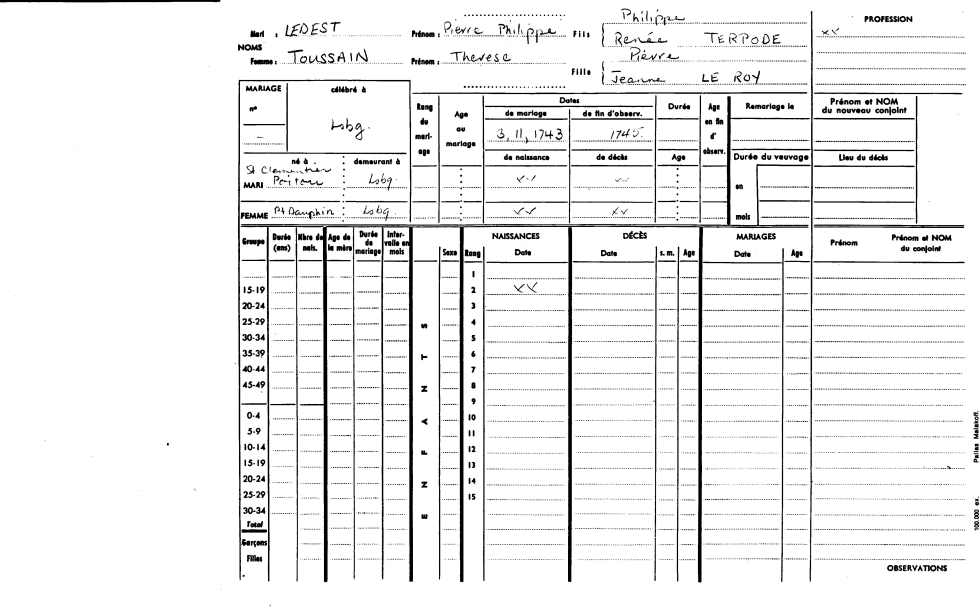 Philippe
PROFESSION
Mari : LEDEST Prénom : Pierre Philippe Fils Renée TERPODE xx
NOMS
Pierre
Femme : TOUSSAIN Prénom : Therese Fille Jeanne LE ROY
MARIAGE célébré à
n° Lsbg.
–
Rang du mari- age
Age au mariage
Dates
de mariage de fin d'observ.
3, 11, 1743 1745.
Durée
Age en fin d' observ.
Remariage le
Prénom et NOM du nouveau conjoint
né à demeurant à
de naissance de décès Age Durée du veuvage Lieu du décès
St
MARI Poitou Lsbg. xx xx en
FEMME Pt Dauphin Lsbg. xx xx mois
Groupe Durée (ans) Nbre de nais. Age de la mère Durée de mariage Inter- valle en mois
ENFANTS
Sexe Rang
NAISSANCES DÉCÈS MARIAGES
Date Date s. m. Age Date Age
Prénom Prénom et NOM du conjoint
1
15-19 2 xx
20-24 3
25-29 4
30-34 5
35-39 6
40-44 7
45-49 8
9
0-4 10
5-9 11
10-14 12
15-19 13
20-24 14
25-29 15
30-34
Total
Garçons
Filles
OBSERVATIONS
100.000 ex. Patlas Malakoff.